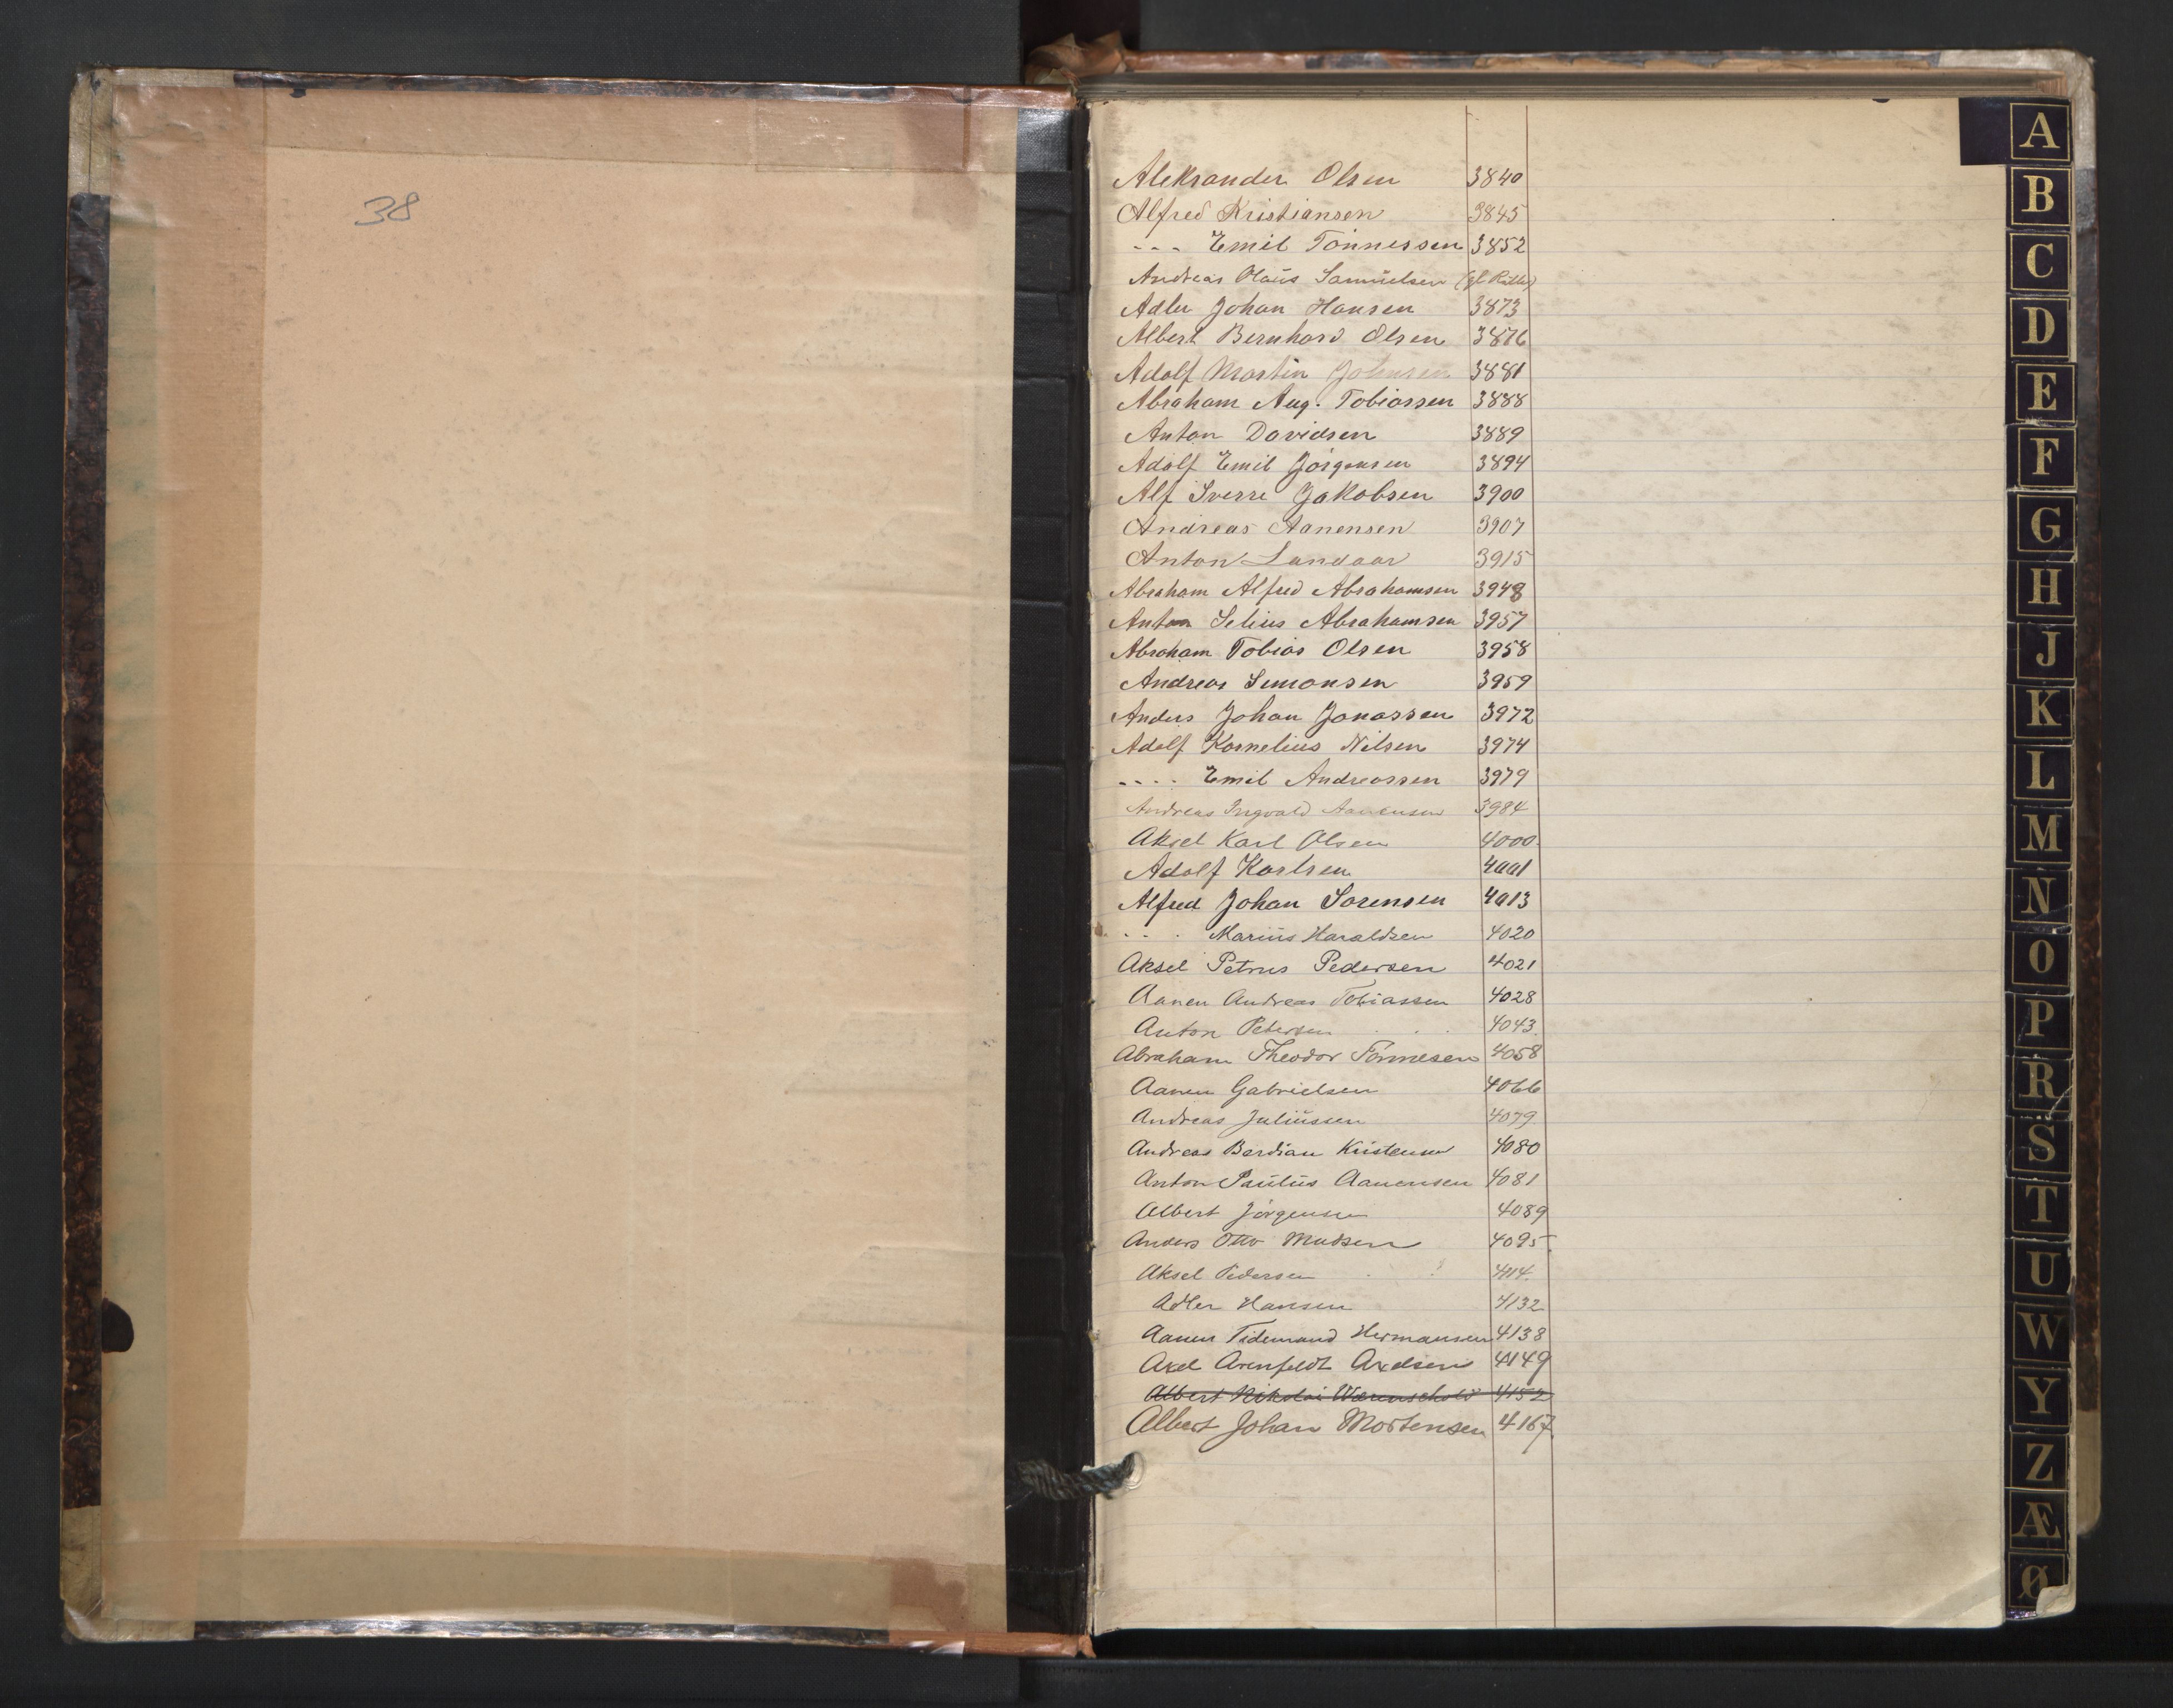 38
Aleksander Olsen 3840
Alfred Kristiansen 3845
- - - Emil Tönnessen 3852
Andreas Olaus Samuelsen (gl Rulle)
Adler Johan Hansen 3873
Albert Bernhard Olsen 3876
Adolf Martin Johnsen 3881
Abraham Aug. Tobiassen 3888
Anton Davidsen 3889
Adolf Emil Jörgensen 3894
Alf Sverre Jakobsen 3900
Andreas Aanensen 3907
Anton Landaas 3915
Abraham Alfred Abrahamsen 3948
Anton Selius Abrahamsen 3957
Abraham Tobias Olsen 3958
Andreas Simonsen 3959
Anders Johan Jonassen 3972
Adolf Kornelius Nilsen 3974
- - - - Emil Andreassen 3979
Andreas Ingvald Aanensen 3984
Aksel Karl Olsen 4000
Adolf Karlsen 4001
Alfred Johan Sorensen 4013
- - - Marius Haraldsen 4020
Aksel Petrus Pedersen 4021
Aanen Andreas Tobiassen 4028
Anton Petersen . . . 4043
Abraham Theodor Tönnesen 4058
Aanen Gabrielsen 4066
Andreas Juliussen 4079
Andreas Berdian Kristensen 4080
Anton Paulus Aanensen 4081
Albert Jörgensen 4089
Anders Otto Madsen 4095
Aksel Pedersen 4114
Adler Hansen 4132
Aanen Tidemand Hermansen 4138
Axel Arenfeldt Axelsen 4149
Albert Nikolai Werenschold 4152
Albert Johan Mortensen 4167
A
B
C
D
E
F
G
H
J
K
L
M
N
O
P
R
S
T
U
W
Y
Z
Æ
Ø